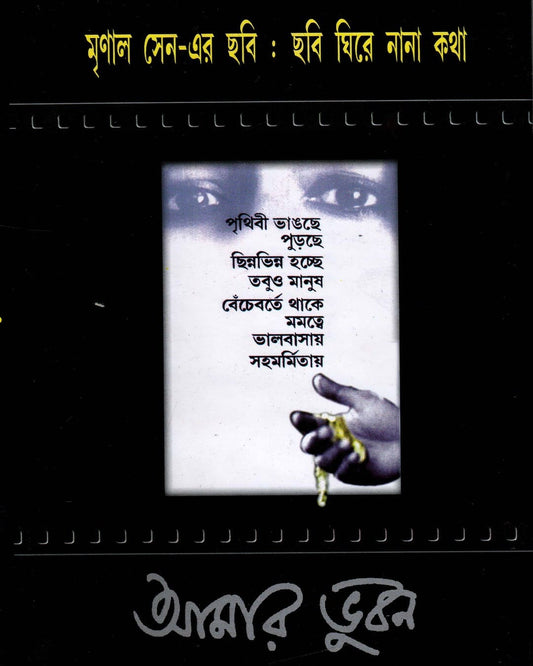 মৃণাল সেন-এর ছবি : ছবি ঘিরে নানা কথা
পৃথিবী ভাঙছে
পুড়ছে
ছিন্নভিন্ন হচ্ছে
তবুও মানুষ
বেঁচেবর্তে থাকে
মমত্বে
ভালবাসায়
সহমর্মিতায়
আমার ভুবন